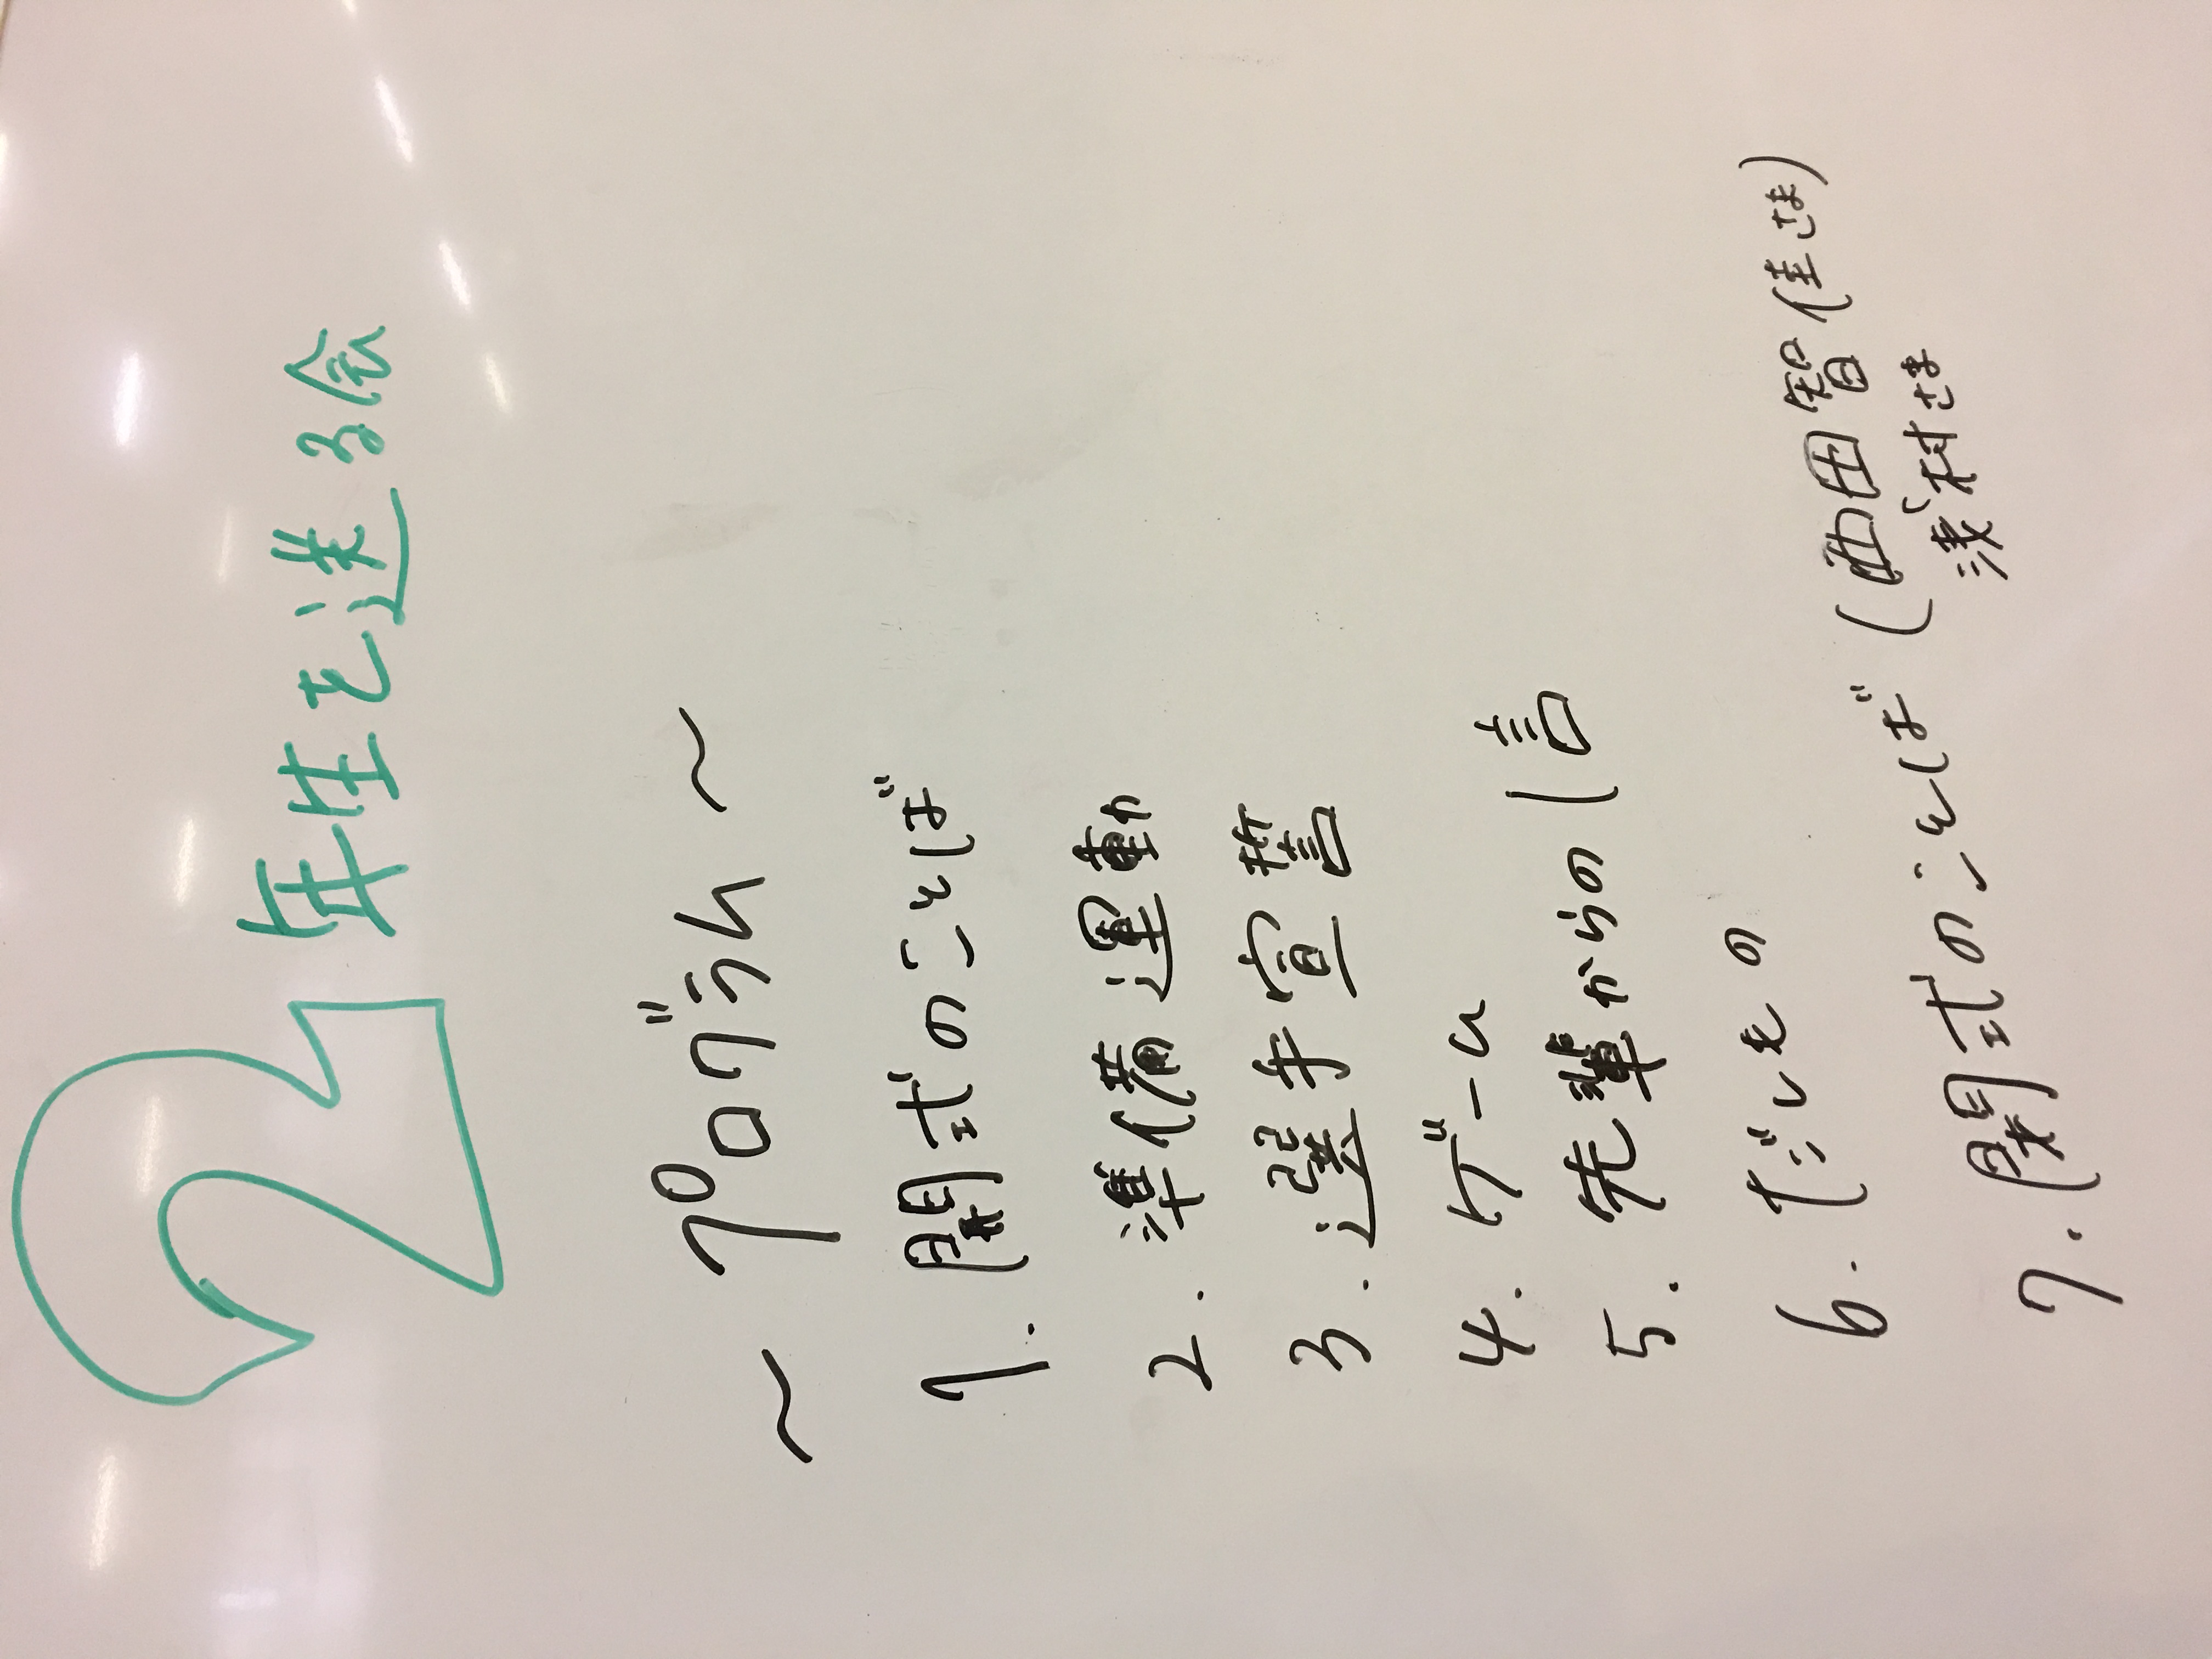 2年生を送る会
～プログラム～
1. 開式のことば
2. 準備運動
3. 選手宣誓
4. ゲーム
5. 先輩からの一言
6. だしもの
7. 閉式のことば（西田智佳さま）
浅村さま